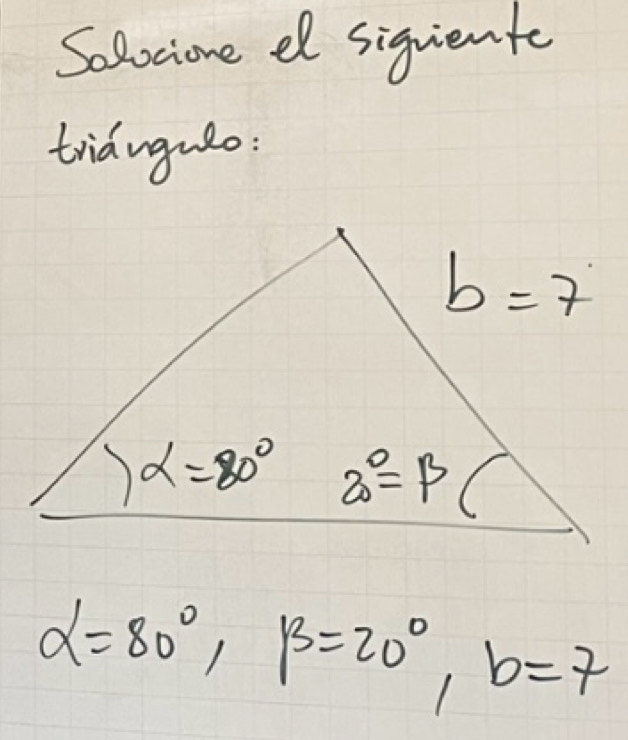 Solucione el siguiente
triángulo:
b = 7
α = 80°
20° = β
α = 80°, β = 20°, b = 7